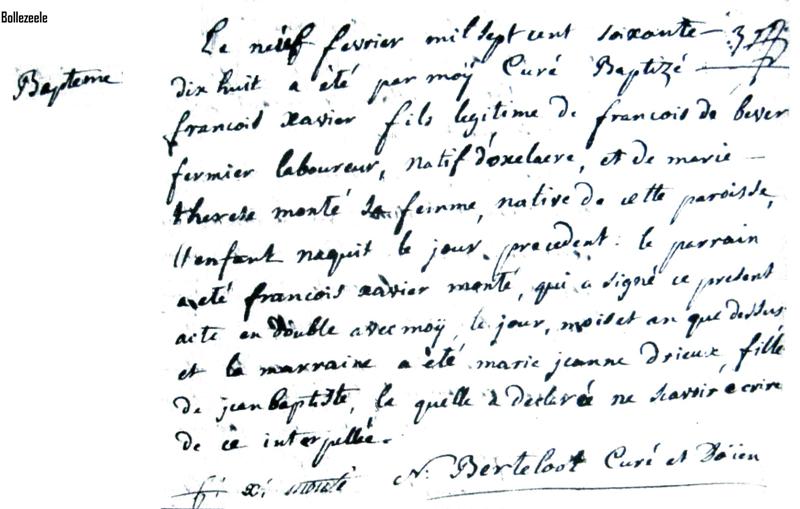 Bollezeele
Le neuf fevrier mil sept cent soixante —
Bapteme
dix huit a été par moÿ Curé Baptizé —
francois xavier fils legitime de francois de bever
fermier laboureur, natif d'oxelaere, et de marie —
therese monté sa femme, native de cette paroisse,
l'enfant naquit le jour precedent: le parrain
a eté francois xavier monté, qui a signé ce present
acte en double avec moÿ, le jour, mois et an que dessus
et la marraine a été marie jeanne Drieux fille
de jean baptiste, la quelle a declaréé ne scavoir écrire
de ce interpellée.
f: xi monté N. Berteloot Curé et Doïen